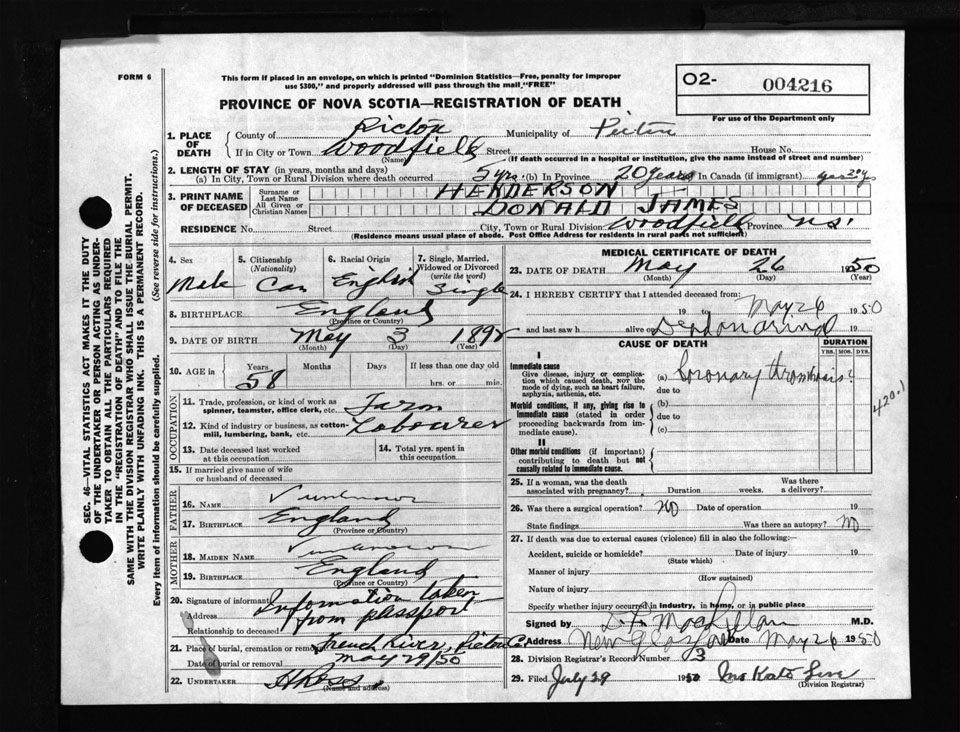 FORM 6
This form if placed in an envelope, on which is printed "Dominion Statistics—Free, penalty for improper
use $300," and properly addressed will pass through the mail "FREE"
O2- 004216
For use of the Department only
PROVINCE OF NOVA SCOTIA—REGISTRATION OF DEATH
SEC. 46—VITAL STATISTICS ACT MAKES IT THE DUTY
OF THE UNDERTAKER OR PERSON ACTING AS UNDER-
TAKER TO OBTAIN ALL THE PARTICULARS REQUIRED
IN THE "REGISTRATION OF DEATH" AND TO FILE THE
SAME WITH THE DIVISION REGISTRAR WHO SHALL ISSUE THE BURIAL PERMIT.
WRITE PLAINLY WITH UNFADING INK. THIS IS A PERMANENT RECORD.
Every item of information should be carefully supplied. (See reverse side for instructions.)
1. PLACE OF DEATH County of Pictou Municipality of Pictou
If in City or Town Woodfield Street House No.
(Name) (If death occurred in a hospital or institution, give the name instead of street and number)
2. LENGTH OF STAY (in years, months and days)
(a) In City, Town or Rural Division where death occurred 5 yrs. (b) In Province 20 years In Canada (if immigrant)
3. PRINT NAME OF DECEASED Surname or Last Name HENDERSON
All Given or Christian Names DONALD JAMES
RESIDENCE No. Street City, Town or Rural Division Woodfield Province N.S.
(Residence means usual place of abode. Post Office Address for residents in rural parts not sufficient)
4. Sex Male
5. Citizenship (Nationality) Can
6. Racial Origin English
7. Single, Married, Widowed or Divorced (write the word) Single
8. BIRTHPLACE England
(Province or Country)
9. DATE OF BIRTH May 3 1892
(Month) (Day) (Year)
10. AGE in Years 58 Months Days If less than one day old
hrs. or min.
OCCUPATION
11. Trade, profession, or kind of work as spinner, teamster, office clerk, etc. Farm
12. Kind of industry or business, as cotton-mill, lumbering, bank, etc. Labourer
13. Date deceased last worked at this occupation
14. Total yrs. spent in this occupation
15. If married give name of wife or husband of deceased
FATHER
16. NAME unknown
17. BIRTHPLACE England
(Province or Country)
MOTHER
18. MAIDEN NAME unknown
19. BIRTHPLACE England
(Province or Country)
20. Signature of informant Information taken
Address from passport
Relationship to deceased
21. Place of burial, cremation or removal French River, Pictou Co.
Date of burial or removal May 29/50
22. UNDERTAKER
(Name and address)
MEDICAL CERTIFICATE OF DEATH
23. DATE OF DEATH May 26 1950
(Month) (Day) (Year)
24. I HEREBY CERTIFY that I attended deceased from
19 to May 26 1950
and last saw h alive on Dead on arrival 19
CAUSE OF DEATH DURATION
YRS. MOS. DYS.
I
Immediate cause
Give disease, injury or complication which caused death, not the mode of dying, such as heart failure, asphyxia, asthenia, etc.
(a) Coronary thrombosis?
due to
420.1
Morbid conditions, if any, giving rise to immediate cause (stated in order proceeding backwards from immediate cause).
(b)
due to
(c)
II
Other morbid conditions (if important) contributing to death but not causally related to immediate cause.
25. If a woman, was the death associated with pregnancy? Duration weeks. Was there a delivery?
26. Was there a surgical operation? No Date of operation 19
State findings Was there an autopsy? No
27. If death was due to external causes (violence) fill in also the following:
Accident, suicide or homicide? Date of injury 19
(State which)
Manner of injury
(How sustained)
Nature of injury
Specify whether injury occurred in industry, in home, or in public place
Signed by MacLellan M.D.
Address New Glasgow Date May 26 1950
28. Division Registrar's Record Number 3
29. Filed July 29 1950 Mrs Kate
(Division Registrar)